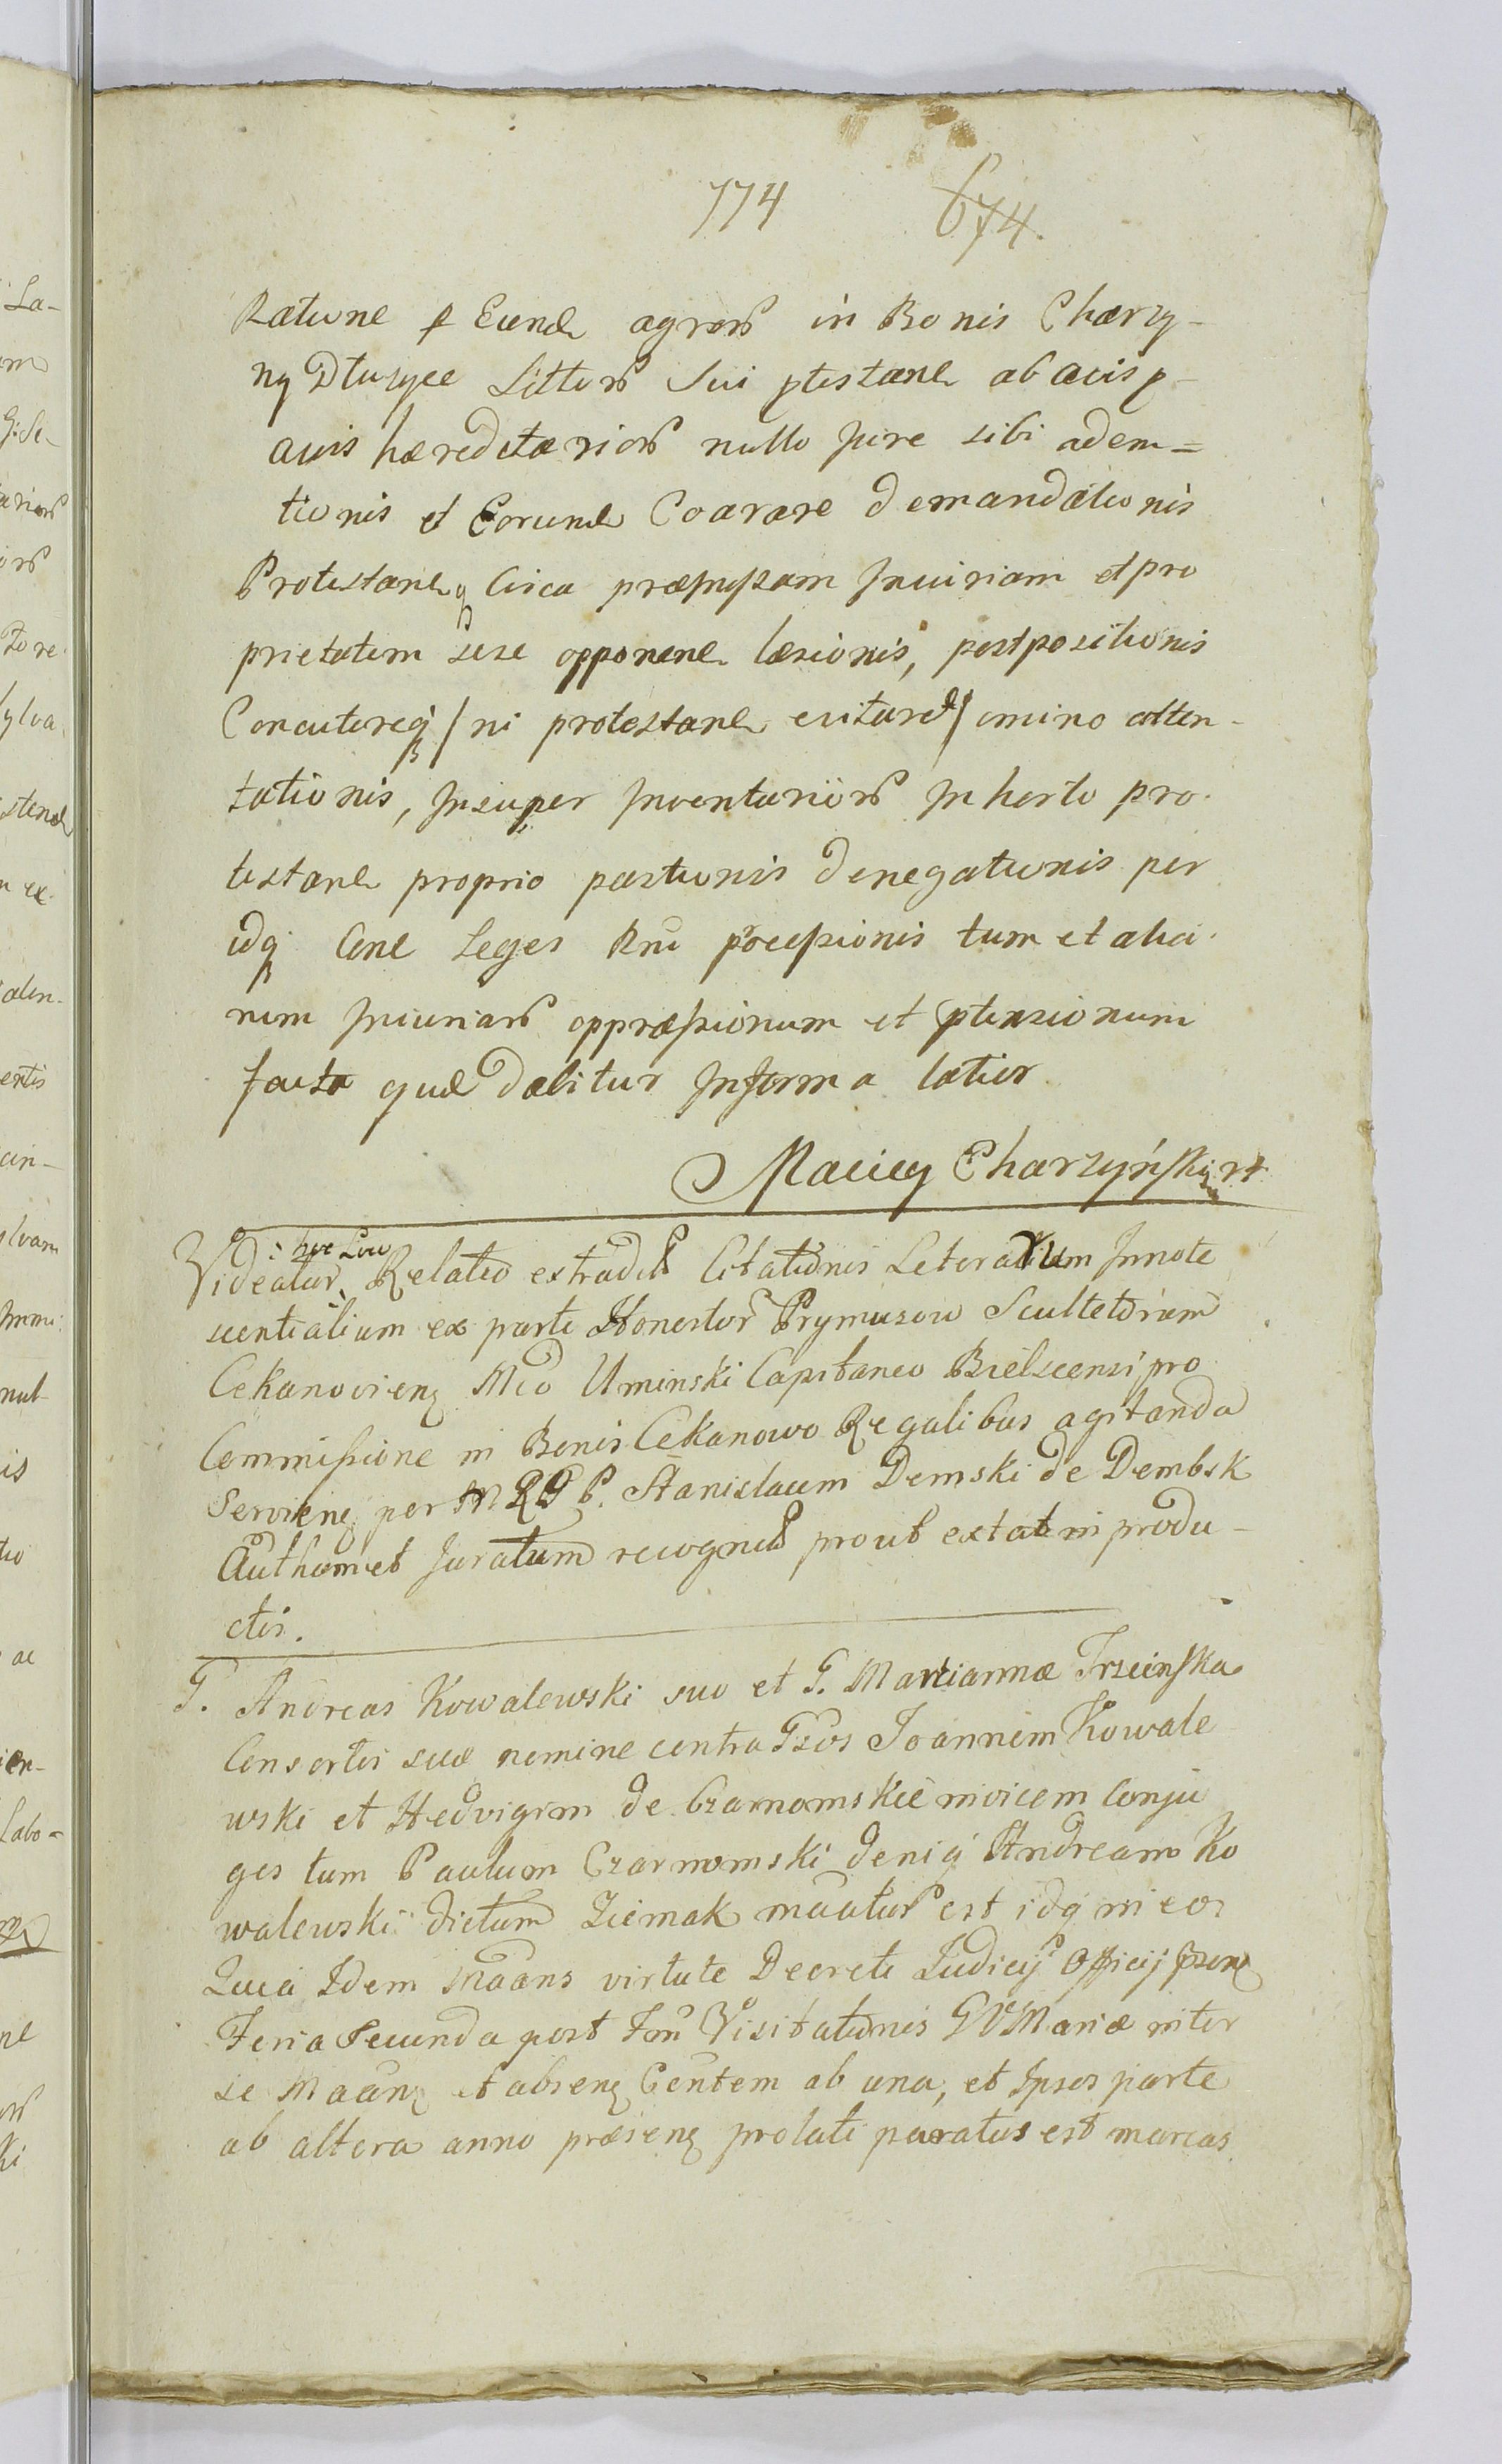 774 674.
Ratione p Eund agrorum in Bonis Charzy-
ny Dłuzyce Littus Sui ptestane ab avis p-
avis hæreditariorum nullo jure sibi adem=
tionis et Eorund Coarare demandationis
Protestaneq Circa præmissam Iniuriam et pro
prietatem sese opponene læsionis, postpositionis
Concutereq / ni protestane evitared / omino atten-
tationis, Insuper Inventariorum In horto pro-
testane proprio pastionis denegationis per
idq Cone Leges Rni processionis tum et alia-
rum Iniuriarum oppræssionum et ptensionum
facta quæ dabitur In forma latior
Maciey Charzyński
hoc Loco
Videatur Relatio extradit Citationis Leterarum Innote
scentialium ex parte Honestor Prymusow Scultetorum
Cekanoviens Mco Uminski Capitaneo Bielscensi pro
Commissione in Bonis Cekanowo Regalibus agitanda
Serviens per M R G P. Stanislaum Demski de Dembsk
Authum et Juratum recognit prout extat in produ-
ctis.
G. Andreas Kowalewski suo et G. Mariannæ Trzcinska
Consortis suæ nomine contra Gsos Joannem Kowale
wski et Hedvigim de Czarnomskie invicem Conju
ges tum Paulum Czarnomski deniq Andream Ko
walewski dictum Ziemak mãatur est idq in eo
Quia Idem Mãans virtute Decreti Judicij Officij psens
Feria Secunda post Fm Visitationis BVMariæ inter
se Maan et absens Gentem ab una, et Ipsos parte
ab altera anno præsens prolati paratus est marcas